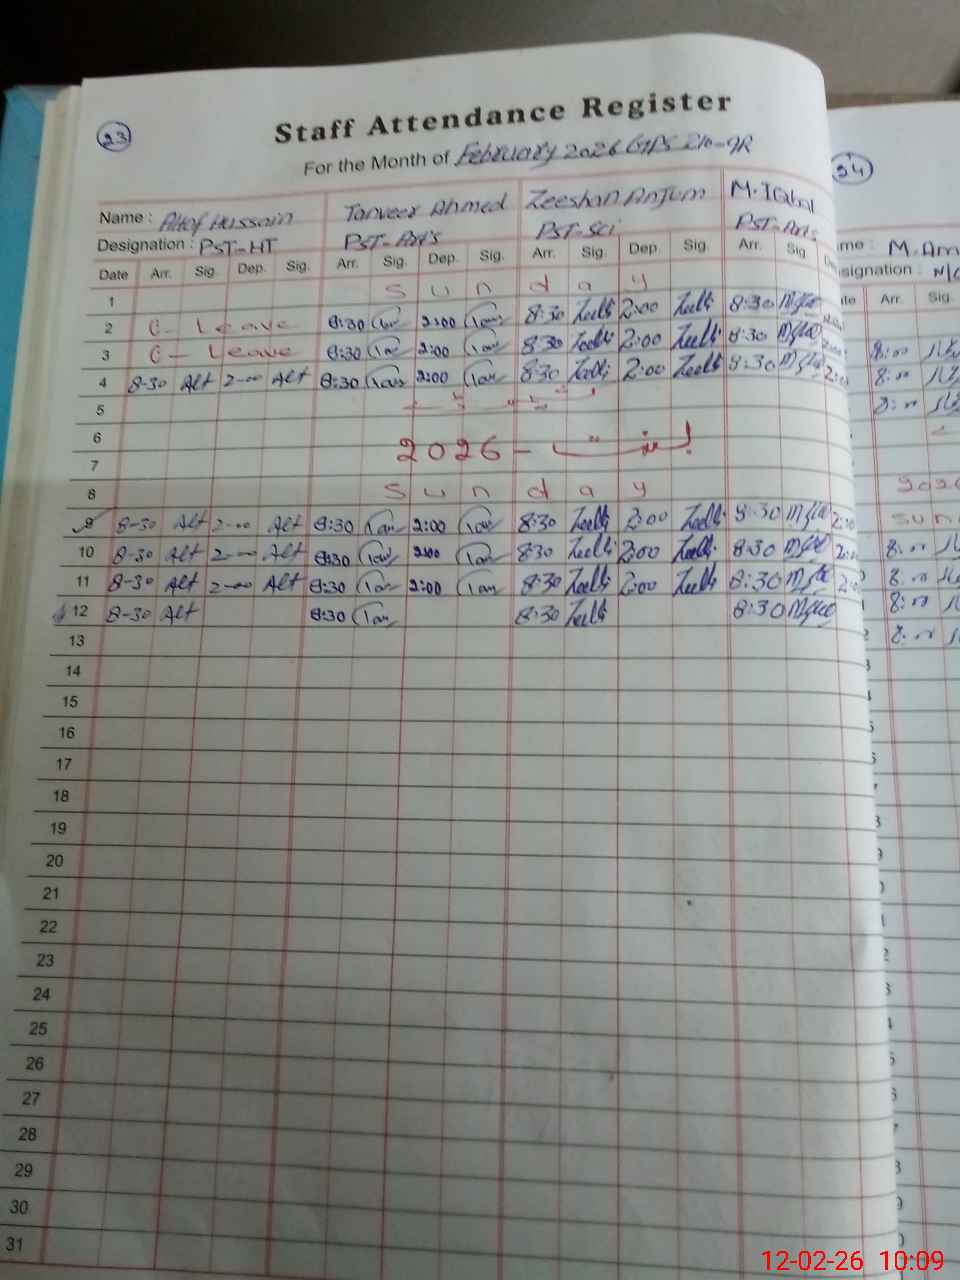 23
Staff Attendance Register
For the Month of February 2026 GPS 210-9R
34
Name : Altaf Hussain Tanveer Ahmed Zeeshan Anjum M. Iqbal
Designation : PST-HT PST-Arts PST-Sci PST-Arts
me : M. Am
signation : N/
Date Arr. Sig. Dep. Sig. Arr. Sig. Dep. Sig. Arr. Sig. Dep. Sig. Arr. Sig. Arr. Sig.
1 Sunday
2 C- Leave 8:30 Tan 2:00 Tan 8:30 Zeeli 2:00 Zeeli 8:30
3 C- Leave 8:30 Tan 2:00 Tan 8:30 Zeeli 2:00 Zeeli 8:30 8:00
4 8-30 Alt 2-00 Alt 8:30 Tan 2:00 Tan 8:30 Zeeli 2:00 Zeeli 8:30 8:00
5 8:00
6 بسنت - 2026
7
8 Sunday
9 8-30 Alt 2-00 Alt 8:30 Tan 2:00 Tan 8:30 Zeeli 2:00 Zeeli 8:30
10 8-30 Alt 2-00 Alt 8:30 Tan 2:00 Tan 8:30 Zeeli 2:00 Zeeli 8:30 8:00
11 8-30 Alt 2-00 Alt 8:30 Tan 2:00 Tan 8:30 Zeeli 2:00 Zeeli 8:30 8:00
12 8-30 Alt 8:30 Tan 8:30 Zeeli 8:30 8:00
13 8:00
14
15
16
17
18
19
20
21
22
23
24
25
26
27
28
29
30
31
12-02-26 10:09